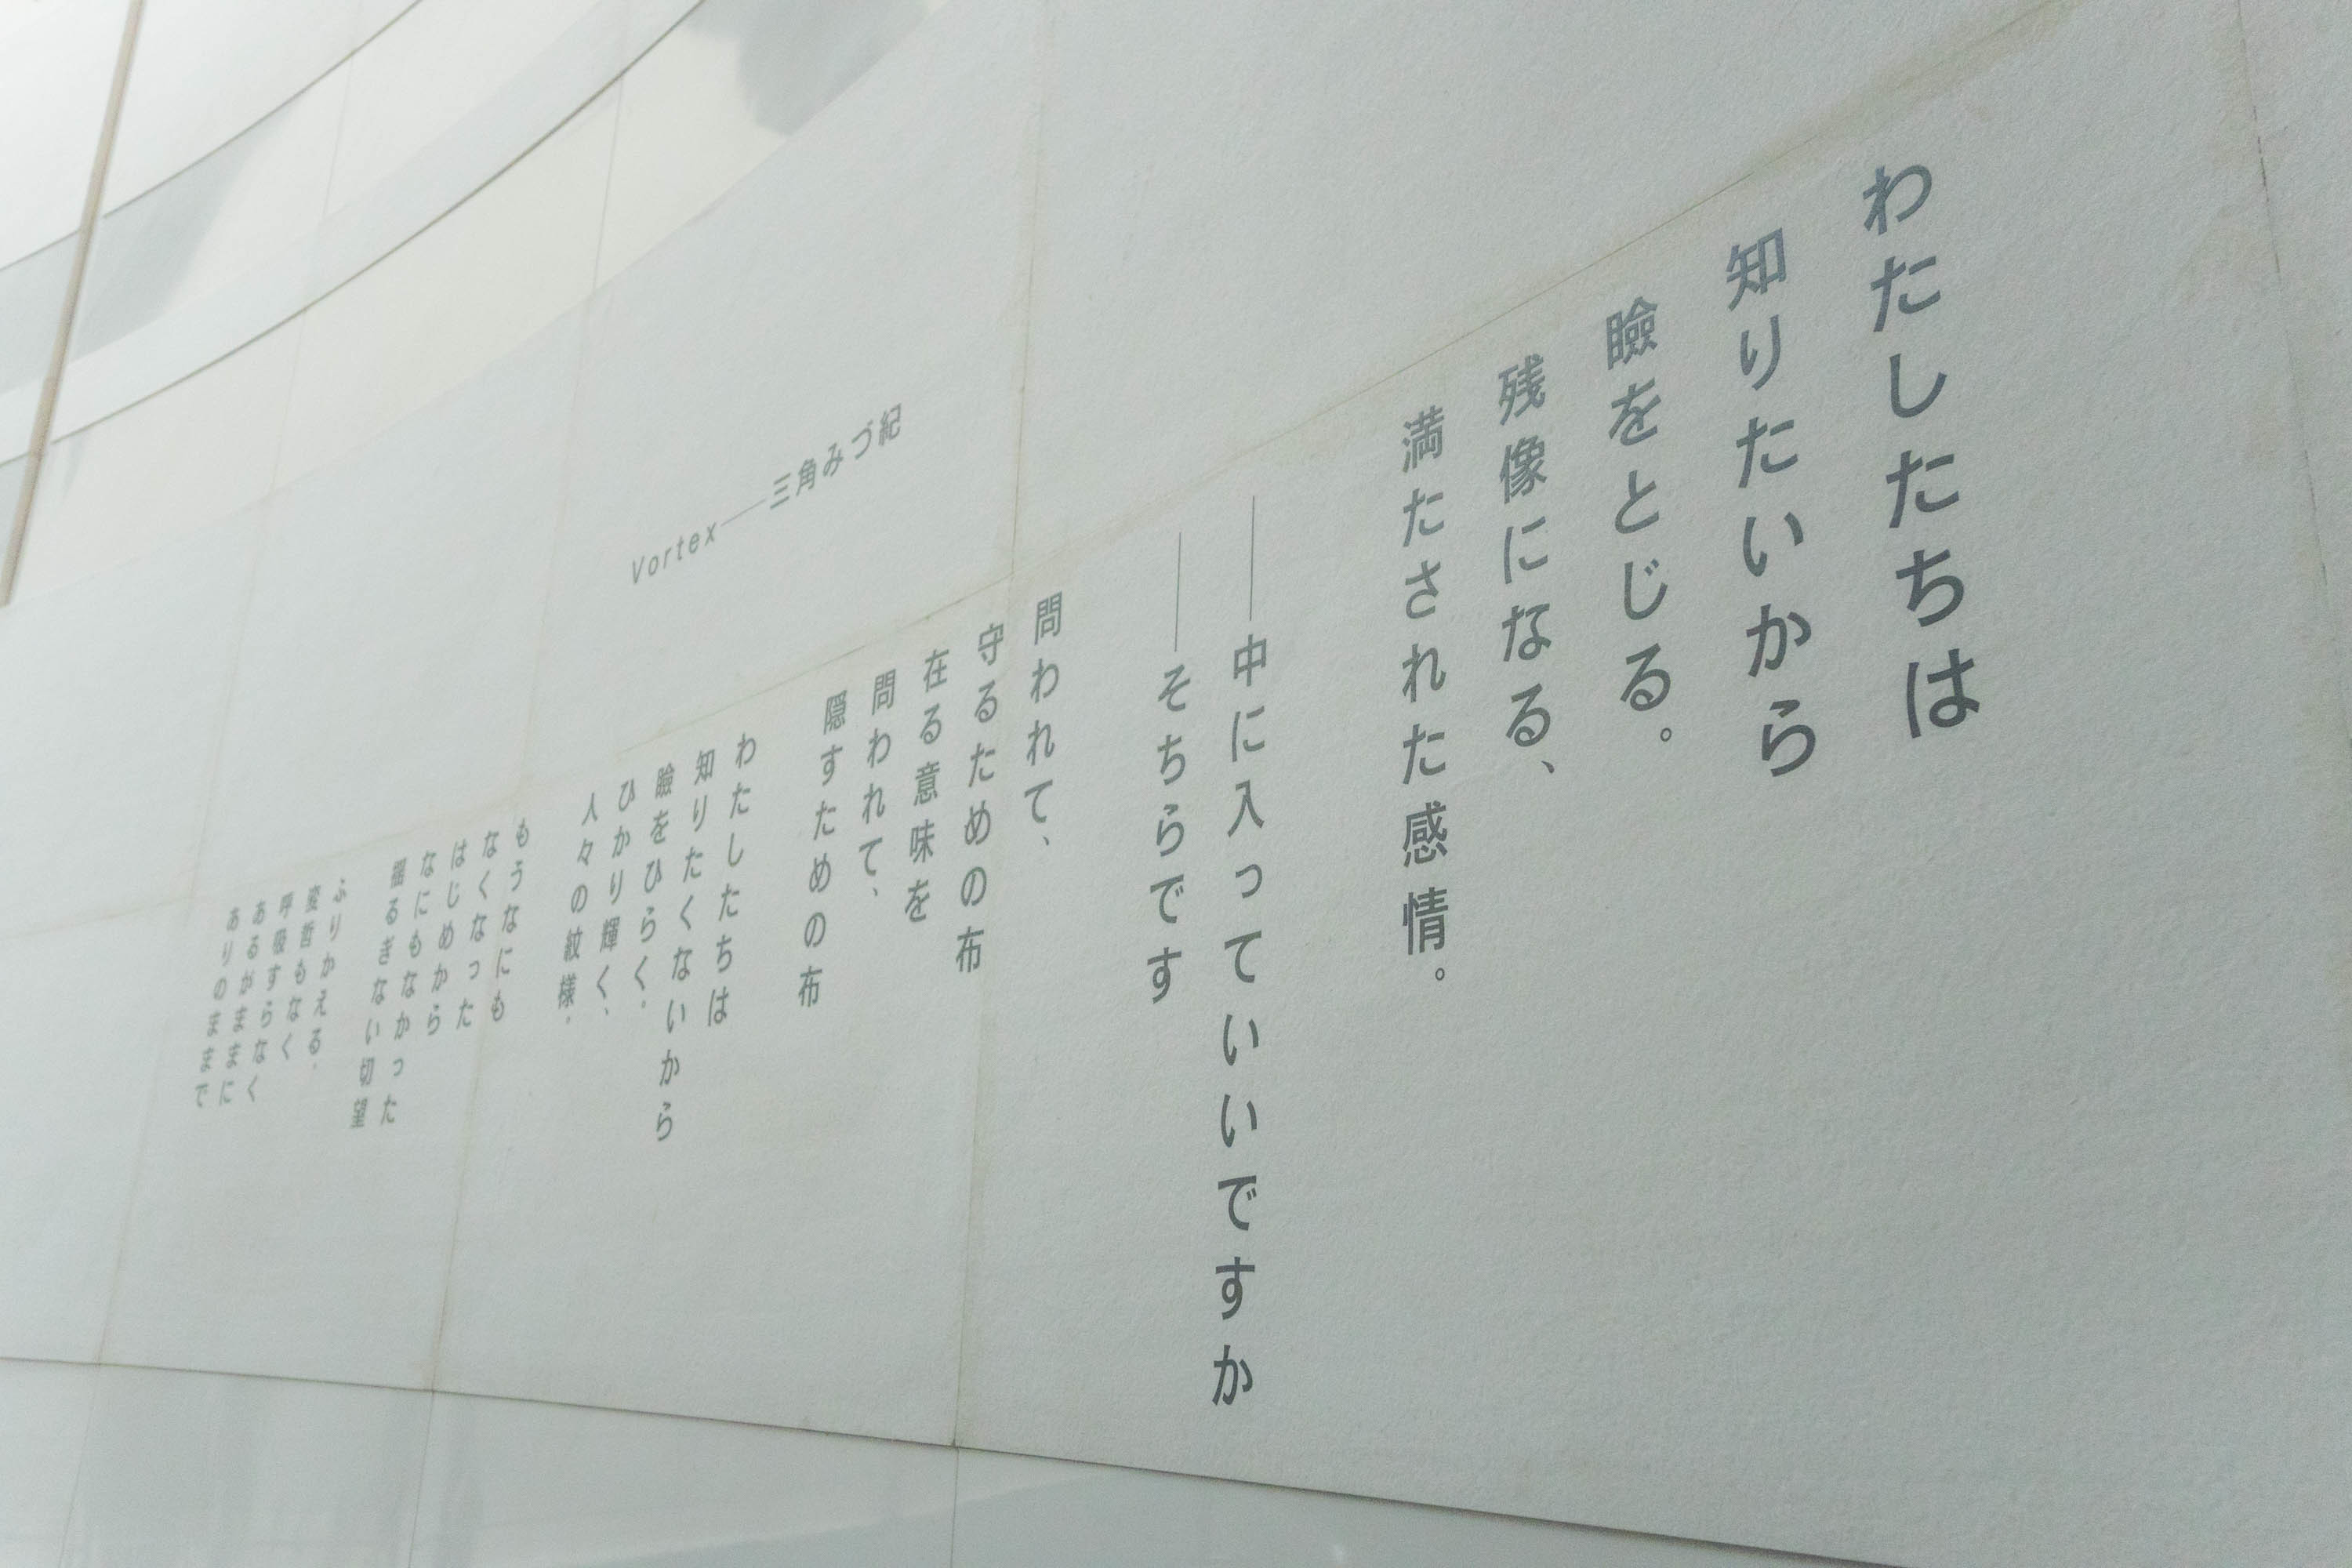 わたしたちは
知りたいから
瞼をとじる。
残像になる、
満たされた感情。
――中に入っていいですか
――そちらです
問われて、
守るための布
在る意味を
問われて、
隠すための布
わたしたちは
知りたくないから
瞼をひらく。
ひかり輝く、
人々の紋様。
もうなにも
なくなった
はじめから
なにもなかった
揺るぎない切望
ふりかえる。
変哲もなく
呼吸すらなく
あるがままに
ありのままで
Vortex――三角みづ紀